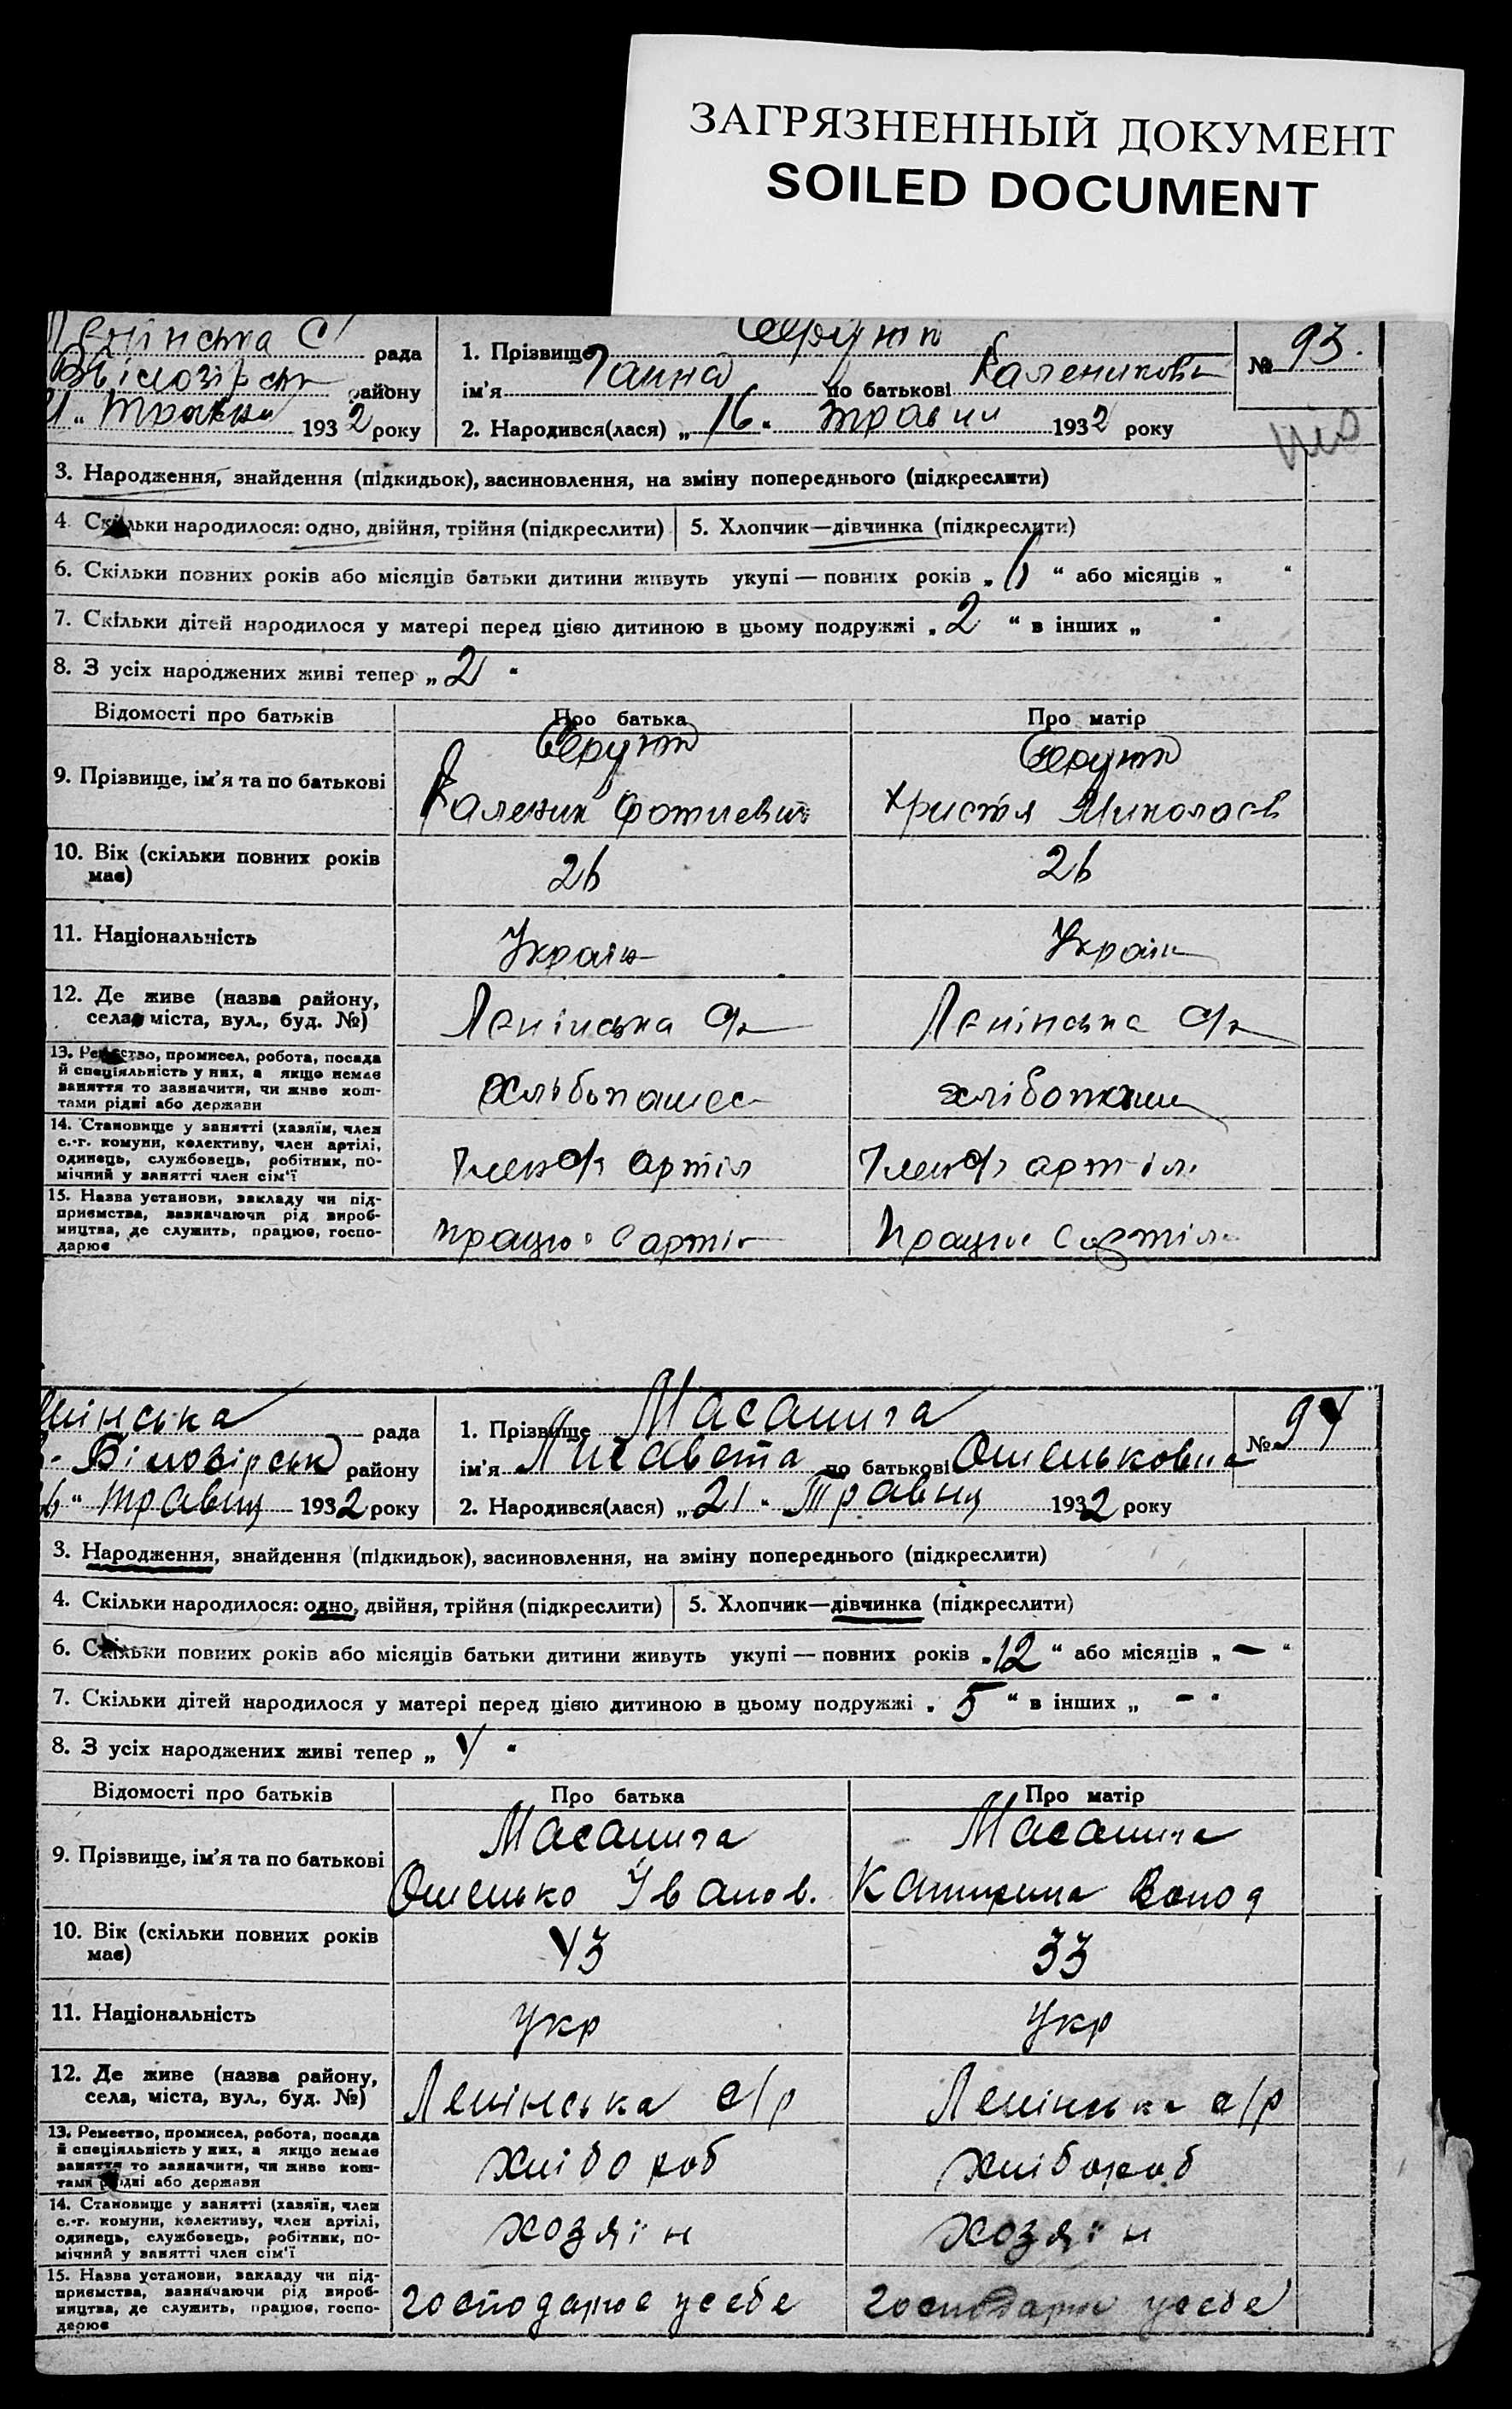 ЗАГРЯЗНЕННЫЙ ДОКУМЕНТ
SOILED DOCUMENT
рада
району
Травня 1932 року
1. Прізвище
ім'я Ганна по батькові Каленикова
2. Народився(лася) „ 16 " травня 1932 року
№ 93.
3. Народження, знайдення (підкидьок), засиновлення, на зміну попереднього (підкреслити)
4. Скільки народилося: одно, двійня, трійня (підкреслити) 5. Хлопчик—дівчинка (підкреслити)
6. Скільки повних років або місяців батьки дитини живуть укупі — повних років „ " або місяців „ "
7. Скільки дітей народилося у матері перед цією дитиною в цьому подружжі „ 2 " в інших „ "
8. З усіх народжених живі тепер „ 2 "
Відомості про батьків Про батька Про матір
9. Прізвище, ім'я та по батькові
Каленик Фотиевич Христя Миколаєв
10. Вік (скільки повних років має) 26 26
11. Національність Україн Україн
12. Де живе (назва району, села, міста, вул., буд. №) Ленінська с/р Ленінська с/р
13. Ремество, промисел, робота, посада
й спеціяльність у них, а якщо немає
заняття то зазначити, чи живе кош-
тами рідні або держави
14. Становище у занятті (хазяїн, член
с.-г. комуни, колективу, член артілі,
одинець, службовець, робітник, по-
мічний у занятті член сім'ї
член с/г артіл член с/г артіл
15. Назва установи, закладу чи під-
приємства, зазначаючи рід вироб-
ництва, де служить, працює, госпо-
дарює
працює с артіл працює с артіл
нінська рада
В-Білозірськ району
26 " травня 1932 року
1. Прізвище Масалига
ім'я Лизавета по батькові Омельковна
2. Народився(лася) „ 21 " Травня 1932 року
№ 94
3. Народження, знайдення (підкидьок), засиновлення, на зміну попереднього (підкреслити)
4. Скільки народилося: одно, двійня, трійня (підкреслити) 5. Хлопчик—дівчинка (підкреслити)
6. Скільки повних років або місяців батьки дитини живуть укупі — повних років „ 12 " або місяців „ — "
7. Скільки дітей народилося у матері перед цією дитиною в цьому подружжі „ 5 " в інших „ — "
8. З усіх народжених живі тепер „ 4 "
Відомості про батьків Про батька Про матір
9. Прізвище, ім'я та по батькові
Масалига Масалига
Омелько Іванов. Катирина
10. Вік (скільки повних років має) 43 33
11. Національність Укр Укр
12. Де живе (назва району, села, міста, вул., буд. №) Ленінська с/р Ленінська с/р
13. Ремество, промисел, робота, посада
й спеціяльність у них, а якщо немає
заняття то зазначити, чи живе кош-
тами рідні або держави
хлібороб хлібороб
14. Становище у занятті (хазяїн, член
с.-г. комуни, колективу, член артілі,
одинець, службовець, робітник, по-
мічний у занятті член сім'ї
хозяїн хозяїн
15. Назва установи, закладу чи під-
приємства, зазначаючи рід вироб-
ництва, де служить, працює, госпо-
дарює
господарює усебе господарює усебе